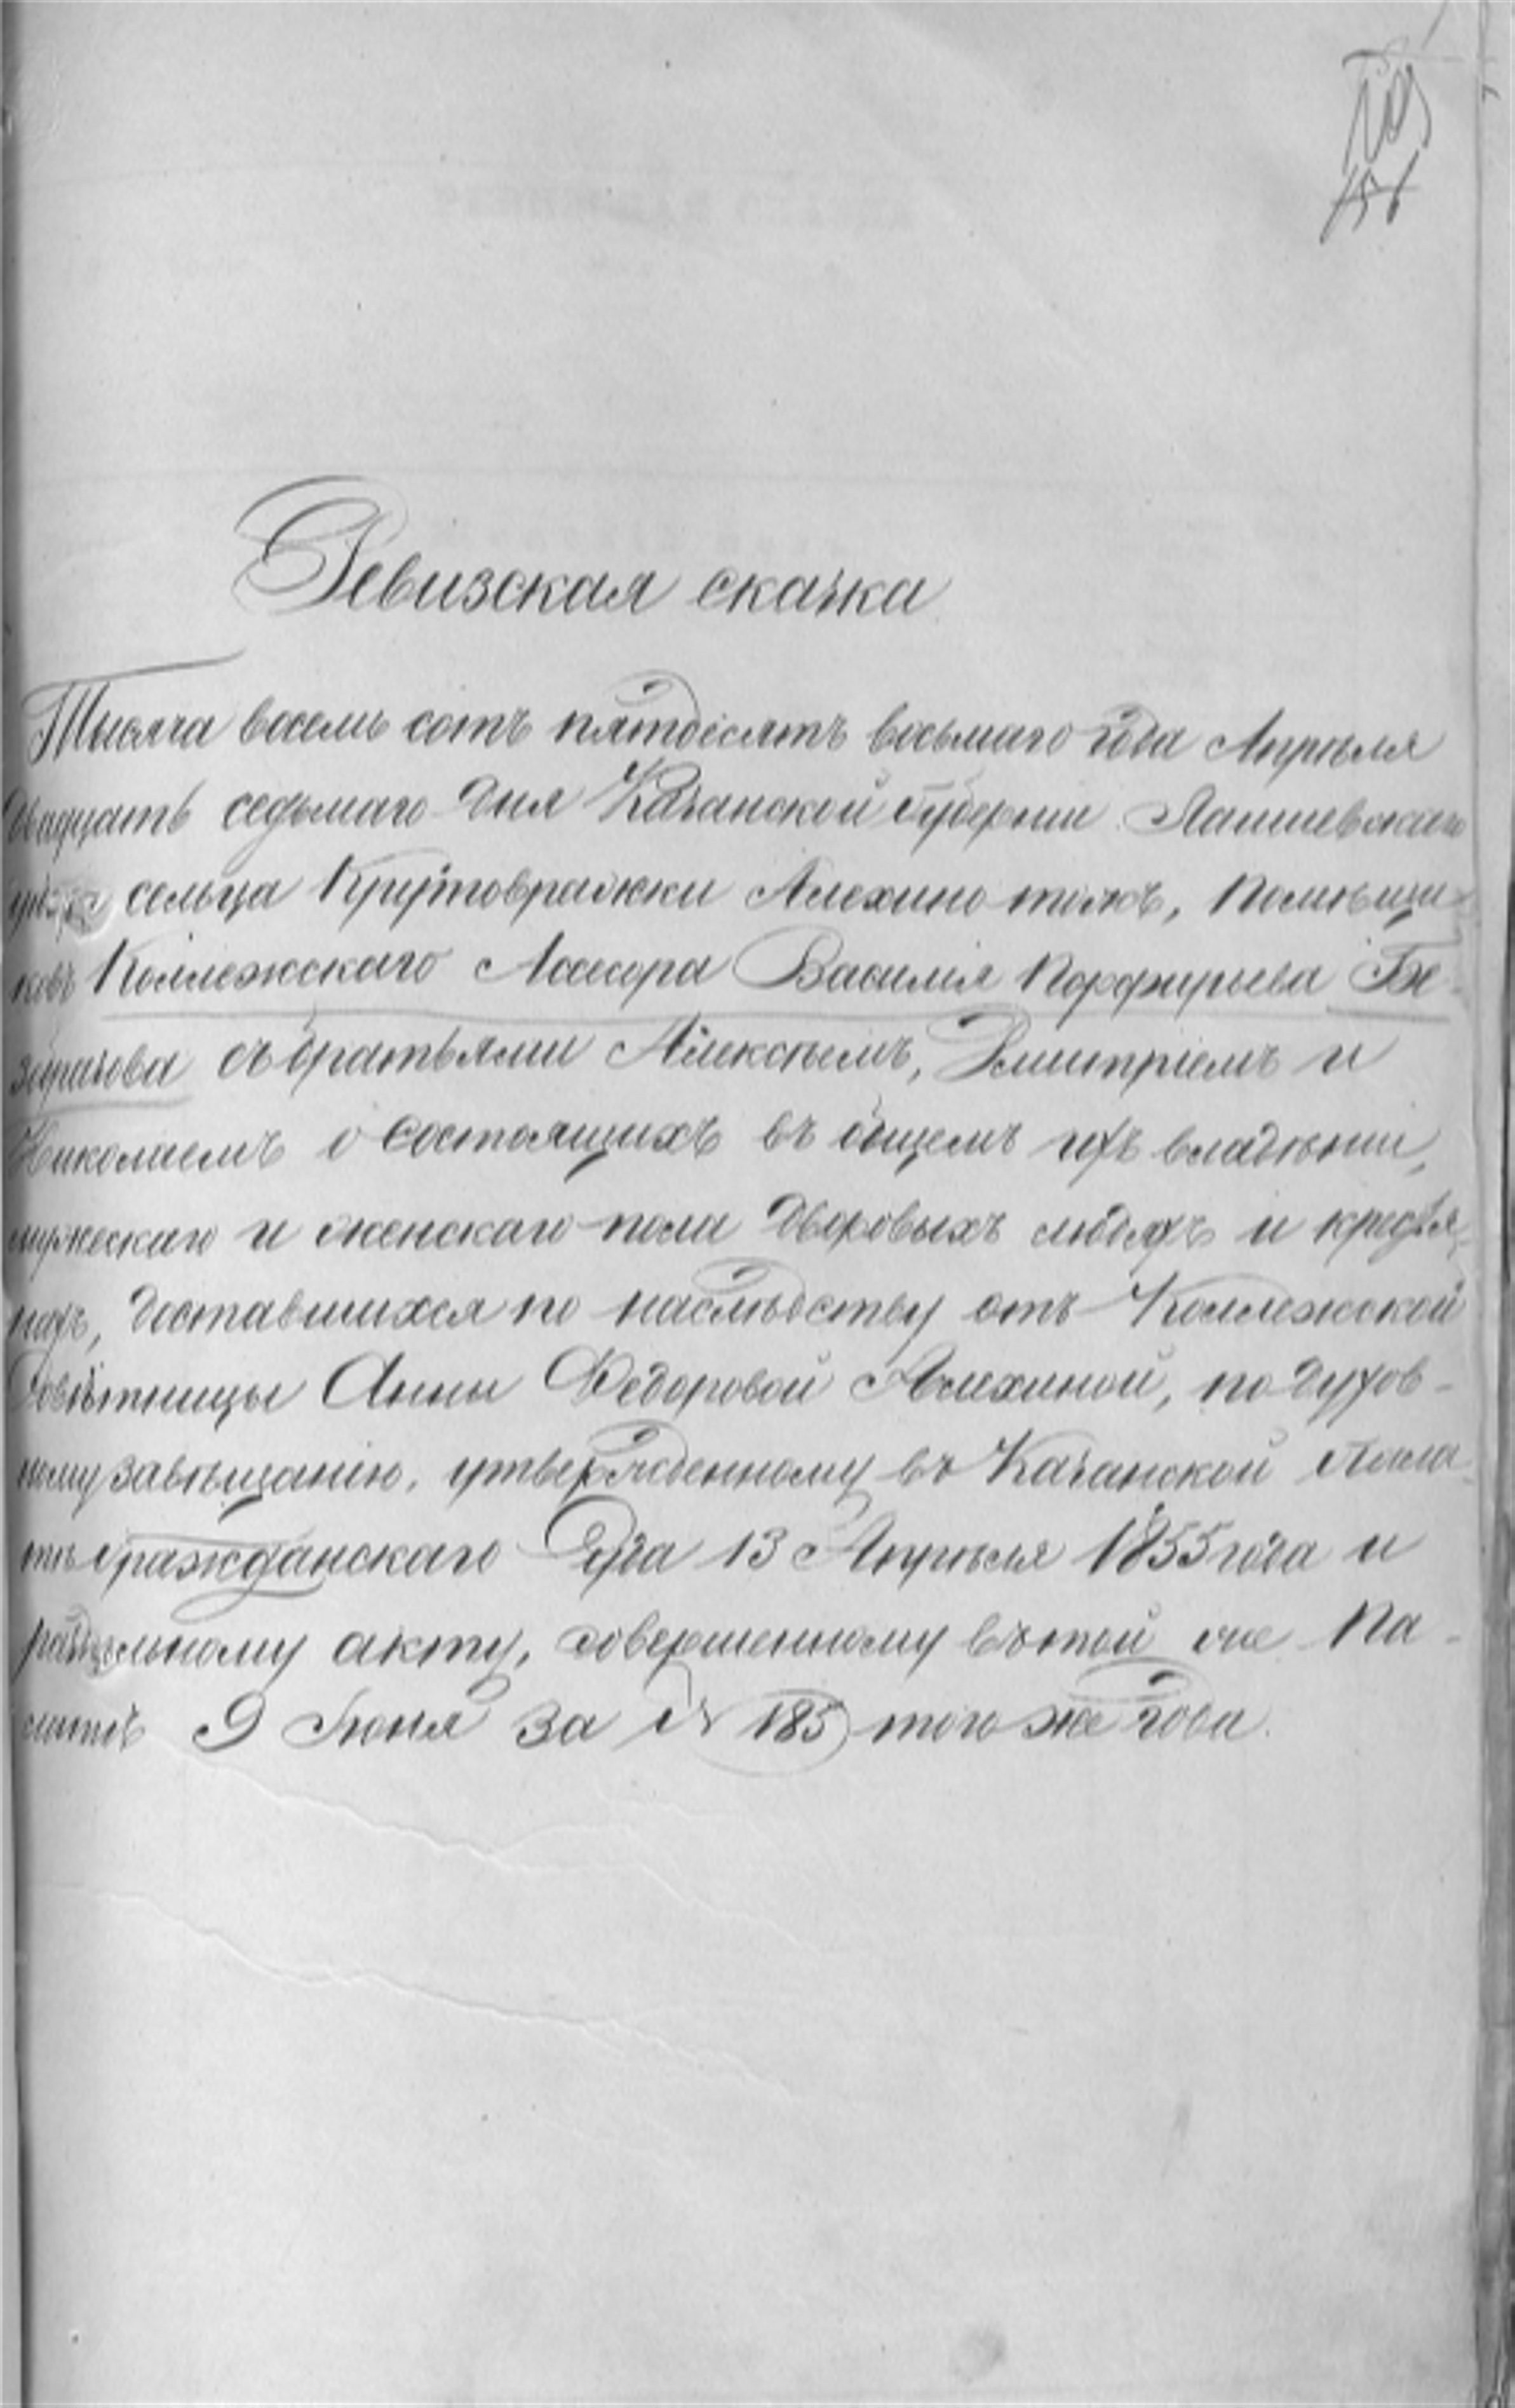 156
Ревизская сказка
Тысяча восемь сотъ пятдесятъ восьмаго года Апрѣля
двадцать седьмаго дня Казанской губерніи Лаишевскаго
уѣзда сельца Крутовражки Алехино тожъ, Помѣщи-
ковъ Коллежскаго Ассесора Василія Порфирьева Бе-
зобразова съ братьями Алексѣемъ, Дмитріемъ и
Николаемъ о состоящихъ въ общемъ ихъ владѣніи,
мужескаго и женскаго пола дворовыхъ людяхъ и кресья-
нахъ, доставшихся по наслѣдству отъ Коллежской
Совѣтницы Анны Федоровой Алехиной, по духов-
ному завѣщанію, утвержденному въ Казанской Пала-
тѣ Гражданскаго Суда 13 Апрѣля 1855 года и
раздѣльному акту, совершенному въ той же Па-
латѣ 9 Іюня за № 185 того же года.